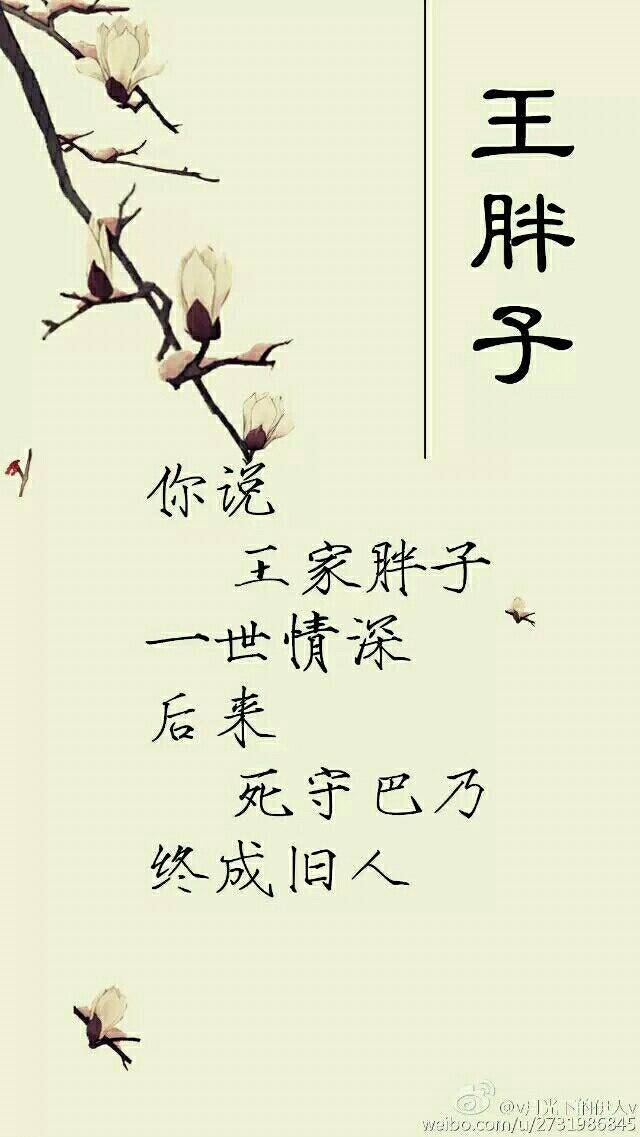 王胖子
你说
王家胖子
一世情深
后来
死守巴乃
终成旧人
@v月光下的伊人v
weibo.com/u/2731986845